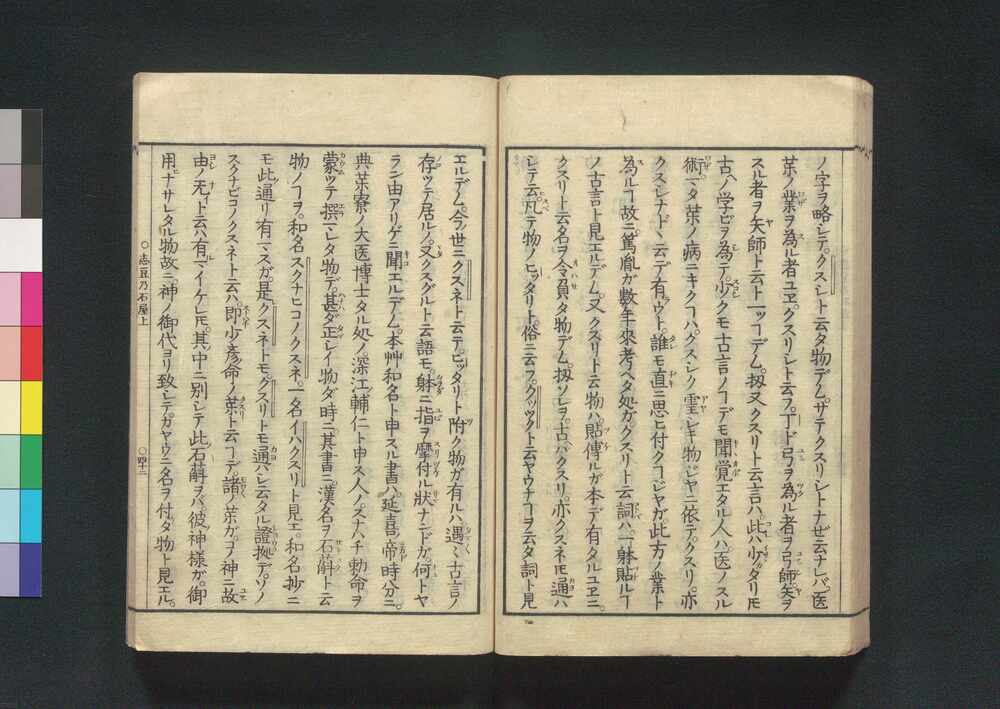 ノ字ヲ略シテ。クスリシト云タ物デム。サテクスリシトナゼ云ナレバ。医
薬ノ業ヲ為ル者ユヱ。クスリシト云フ。丁ド弓ヲ為ル者ヲ弓師。矢ヲ
スル者ヲ矢師ト云ト一ツヿデム。扨又クスリト云言ハ。此ハ少ヅヽタリモ
古ヘノ学ビヲ為テ。少ツクモ古言ノヿデモ聞覚エタル人ハ。医ノスル
術。マタ薬ノ病ニキクヿハ。グスシク霊シキ物ジヤニ依テ。クスリ。亦
クスシナドヽ云デ有ウト。誰モ直ニ思ヒ付クヿジヤガ。此方ノ業ト
為ルヿ故ニ。篤胤ガ数年来考ヘタ処ガ。クスリト云詞ハ。一躰貼ルヿ
ノ古言ト見エルデム。又クスリト云物ハ。貼傳ルガ本デ有タルユヱニ。
クスリト云名ヲ令負タ物デム。扨ソレヲ。古ハクスリ。亦クスネモ通ハ
シテ云。凡テ物ノヒツタリト。俗ニ云フ。クツヽクト云ヤウナヿヲ云タ詞ト見
エルデム。今ノ世ニ。クスネト云テ。ピツタリト附ク物ガ有ルハ。遇々古言ノ
存ツテ居ルノ。又クスグルト云語モ。躰ニ指ヲ摩付ル状ナンドガ。何トヤ
ラン由アリゲニ聞エルデム。本艸和名ト申スル書ハ。延喜ノ帝ノ時分ニ。
典薬寮ノ大医博士タル処ノ。深江ノ輔仁ト申ス人ノ。スナハチ勅命ヲ
蒙ツテ。撰マレタ物デ。甚ダ正シイ物ダ時ニ。其書ニ。漢名ヲ石斛ト云
物ノヿヲ。和名スクナヒコノクスネ。一名イハクスリト見エ。和名抄ニ
モ此通リ有マスガ。是クスネトモ。グスリトモ通ハシ云タル證拠デ。ソノ
スクナビコノクスネト云ハ。即少彦命ノ薬ト云ヿデ。諸ノ薬ガ。コノ神ニ故
由ノ无イト云ハ有マイケレモ。其中ニ別シテ此石斛ヲバ。彼神様ガ。御
用ナサレタル物故ニ。神ノ御代ヨリ致シテ。ガヤウニ名ヲ付タ物ト見エル。
○志豆乃石屋上
○四十二